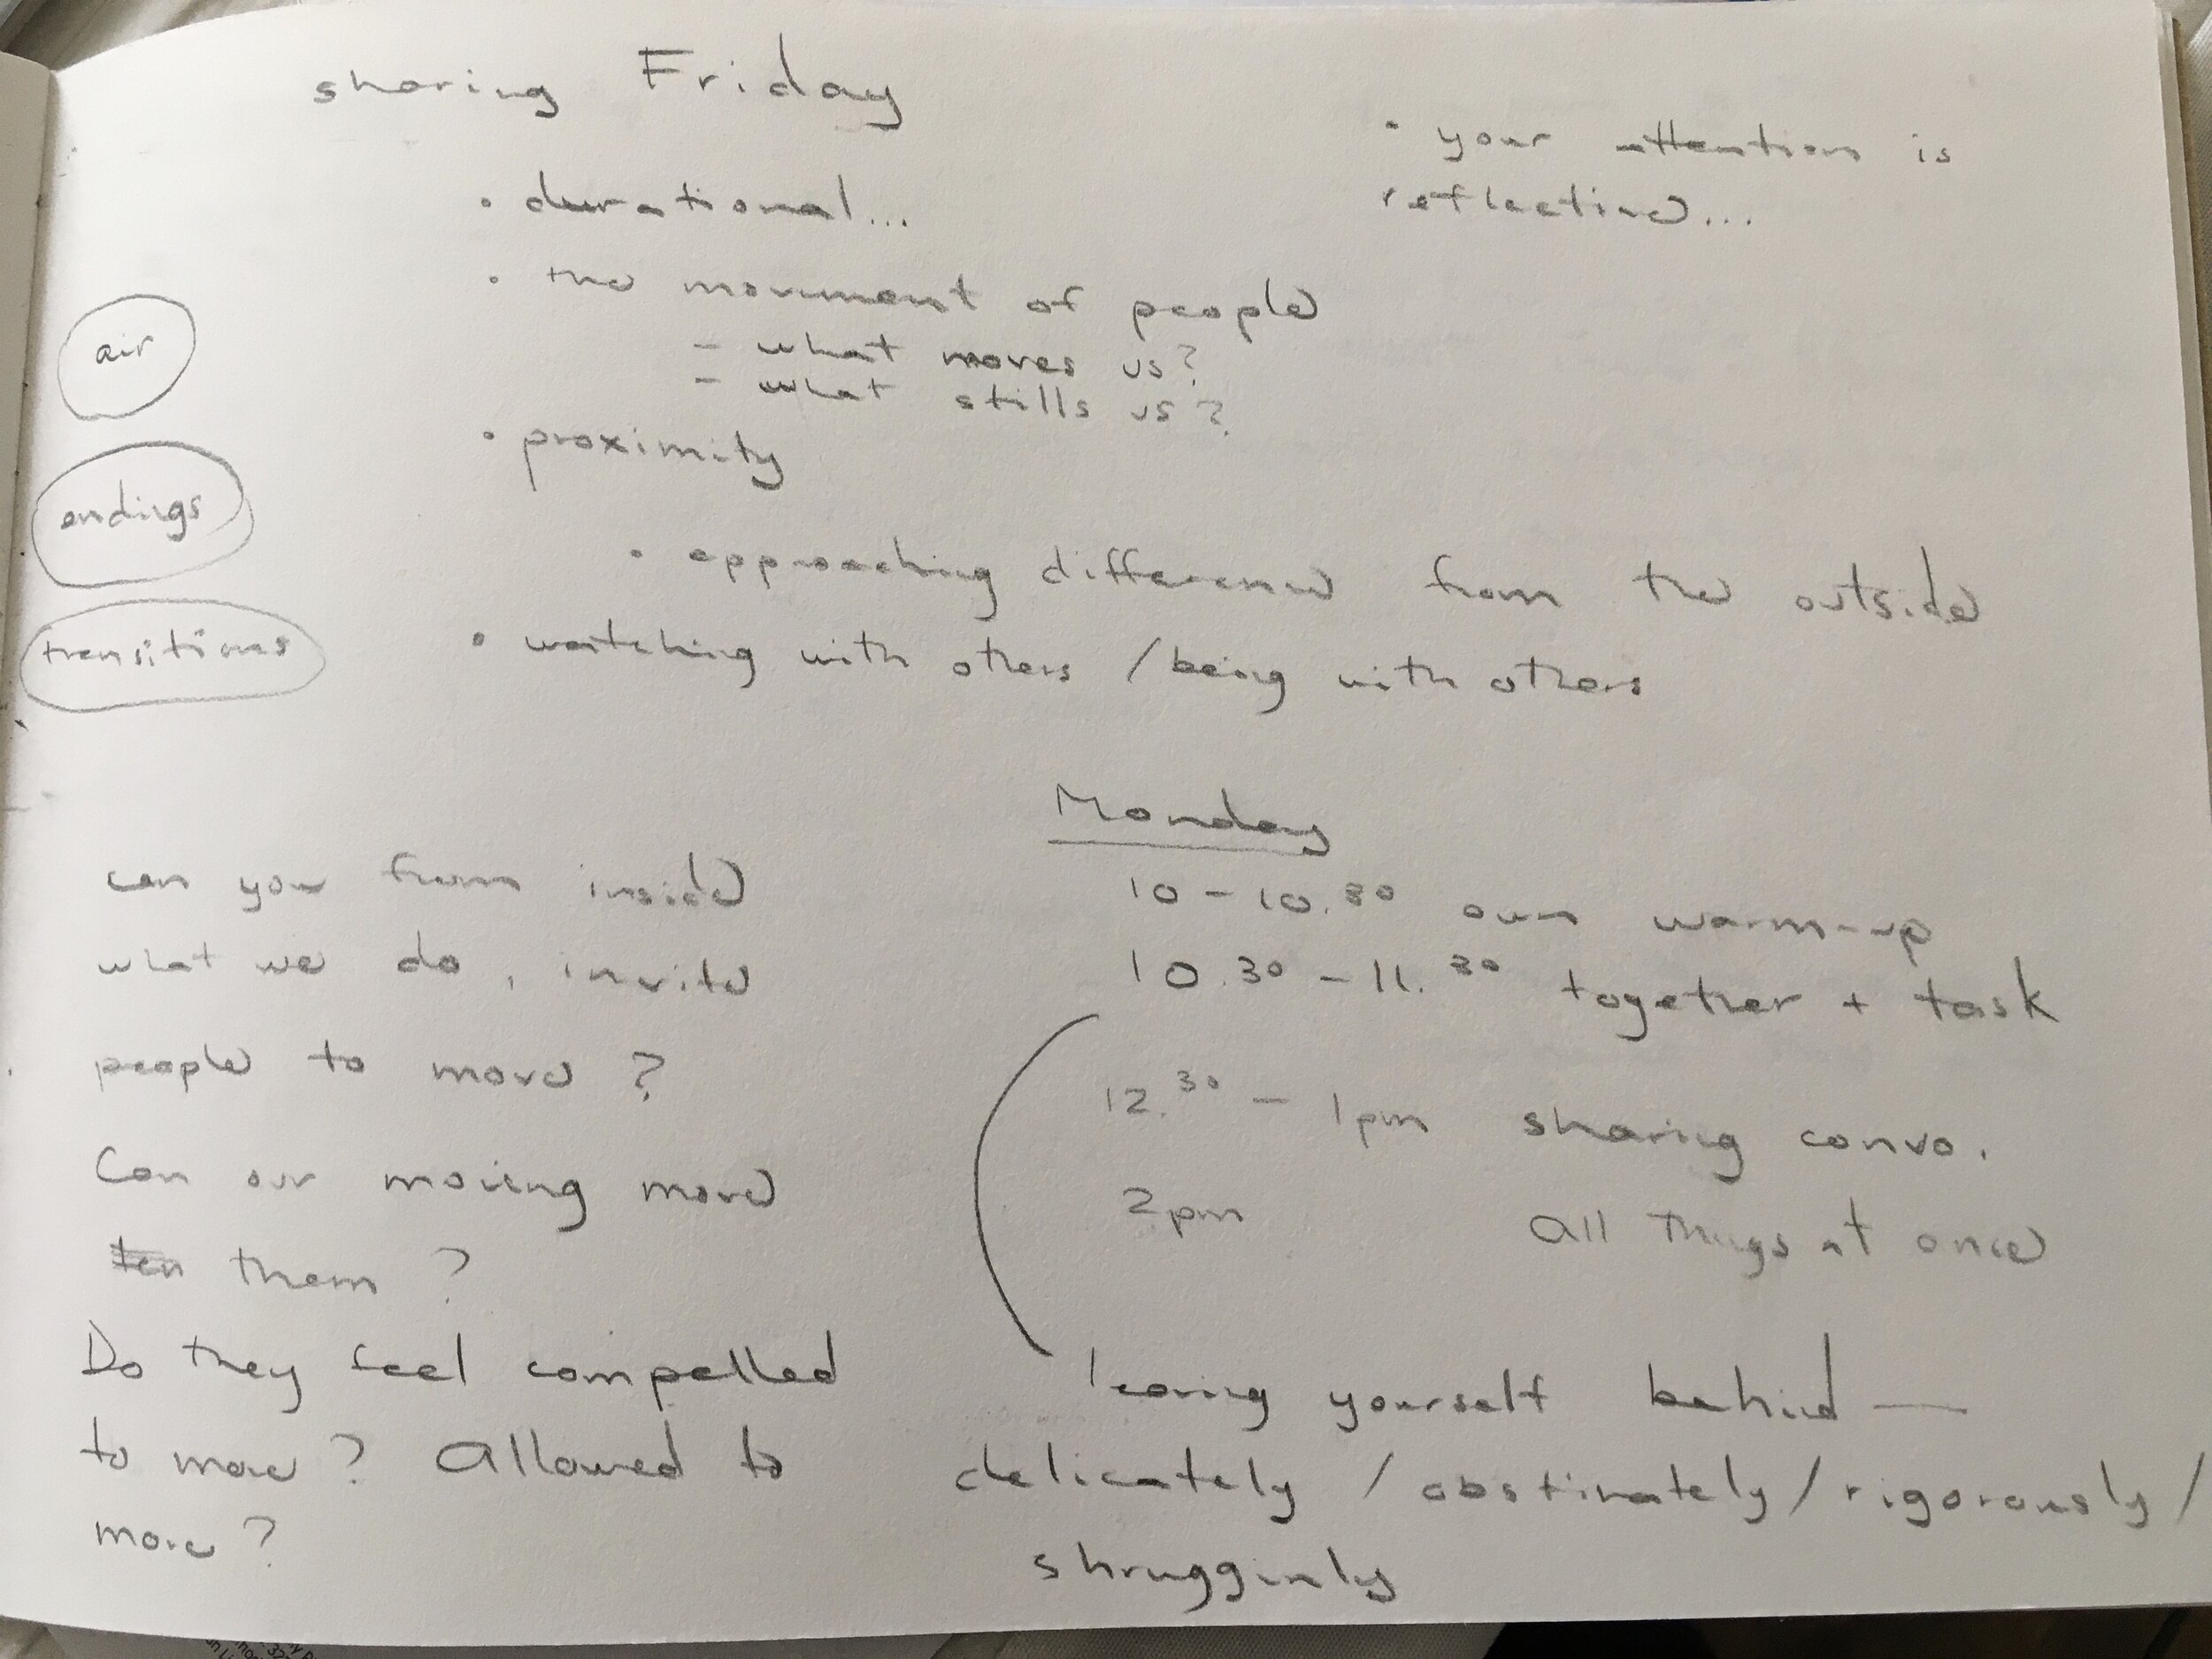 sharing Friday
• your attention is
reflective...
• durational...
• the movement of people
- what moves us?
- what stills us?
• proximity
air
endings
transitions
• approaching difference from the outside
• watching with others / being with others
can you from inside
what we do, invite
people to move?
Can our moving move
them?
Do they feel compelled
to move? Allowed to
move?
Monday
10 - 10.30 own warm-up
10.30 - 11.30 together + task
12.30 - 1pm sharing convo.
2pm All things at once
leaving yourself behind —
delicately / obstinately / rigorously /
shrugginly